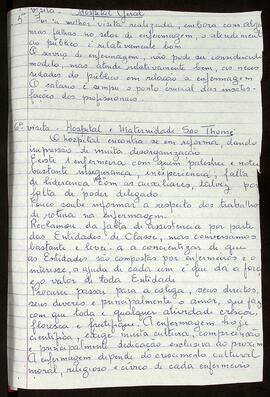 visita - Hospital Geral
5º Foi a melhor visita realizada, embora com algu
mas falhas no setor de enfermagem, o atendimento
ao público é relativamente bom
O serviço de enfermagem, não pode ser considerado
modelo, mas atende relativamente bem, as neces
sidades do público em relação a enfermagem
O salário é sempre o ponto crucial das insatis-
fações dos profissionais.
6º visita - Hospital e Maternidade São Thomé
O hospital encontra-se em reforma, dando
impressão de muita desorganização
Existe 1 enfermeira com quem palestrei e notei
bastante insegurança, inexperiência, falta
de liderança com os auxiliares, talvez por
falta de poder delegado
Pouco soube informar a respeito dos trabalhos
de rotina na enfermagem.
Reclamou da falta de assistencia por parte
das Entidades de Classe, mas conversamos
bastante e levei-a a conscientizar de que
as Entidades são compostas por enfermeiros e o
interesse, a ajuda de cada um é que dá a força
e o valor de toda Entidade
Procurei passar para a colega, seus direitos,
seus deveres e principalmente o amor, que faz
com que toda e qualquer atividade cresça,
floresça e frutifique. A enfermagem hoje
científica, exige muita cultura, compreensão
e principalmente dedicação exclusiva ao próximo
A enfermagem depende do crescimento cultural,
moral, religioso e cívico de cada enfermeiro